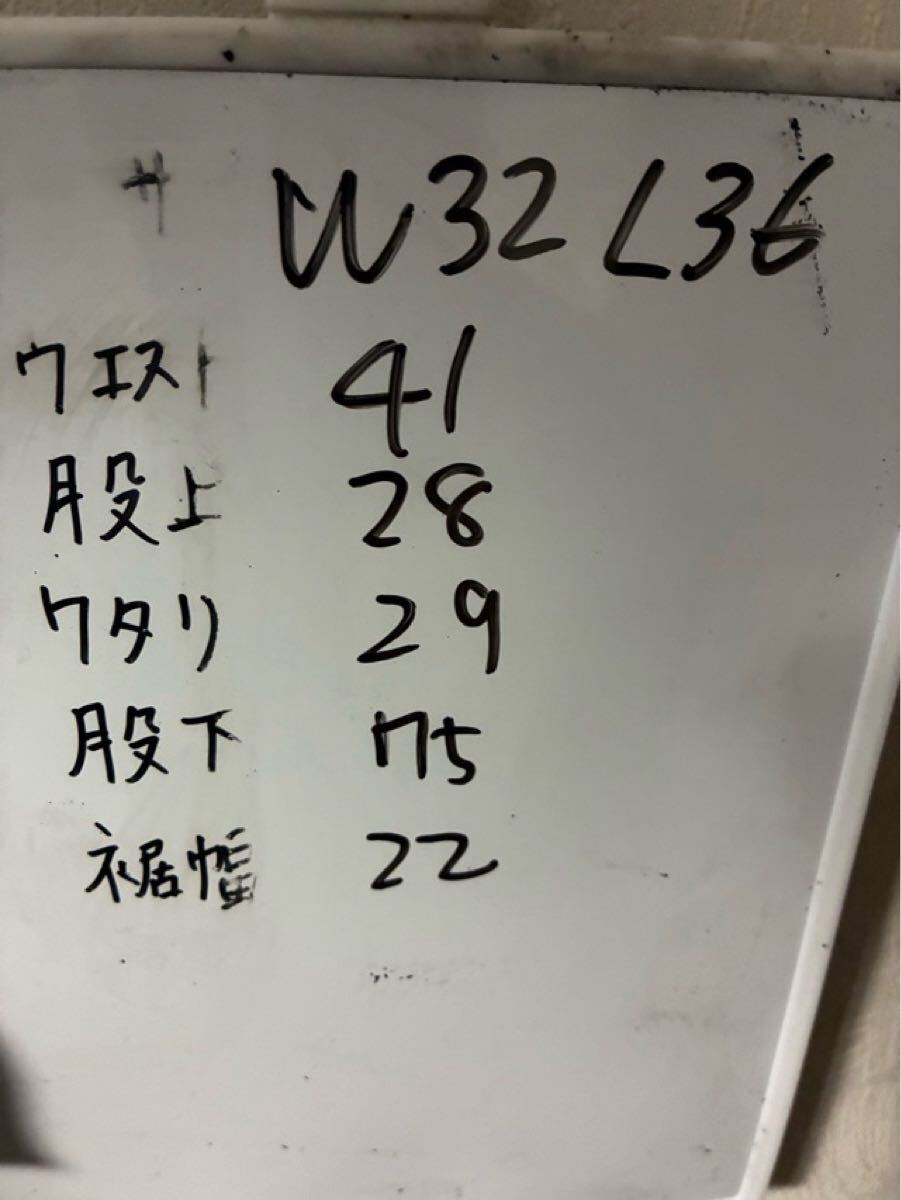 サ W32 L36
ウエスト 41
股上 28
ワタリ 29
股下 75
裾幅 22